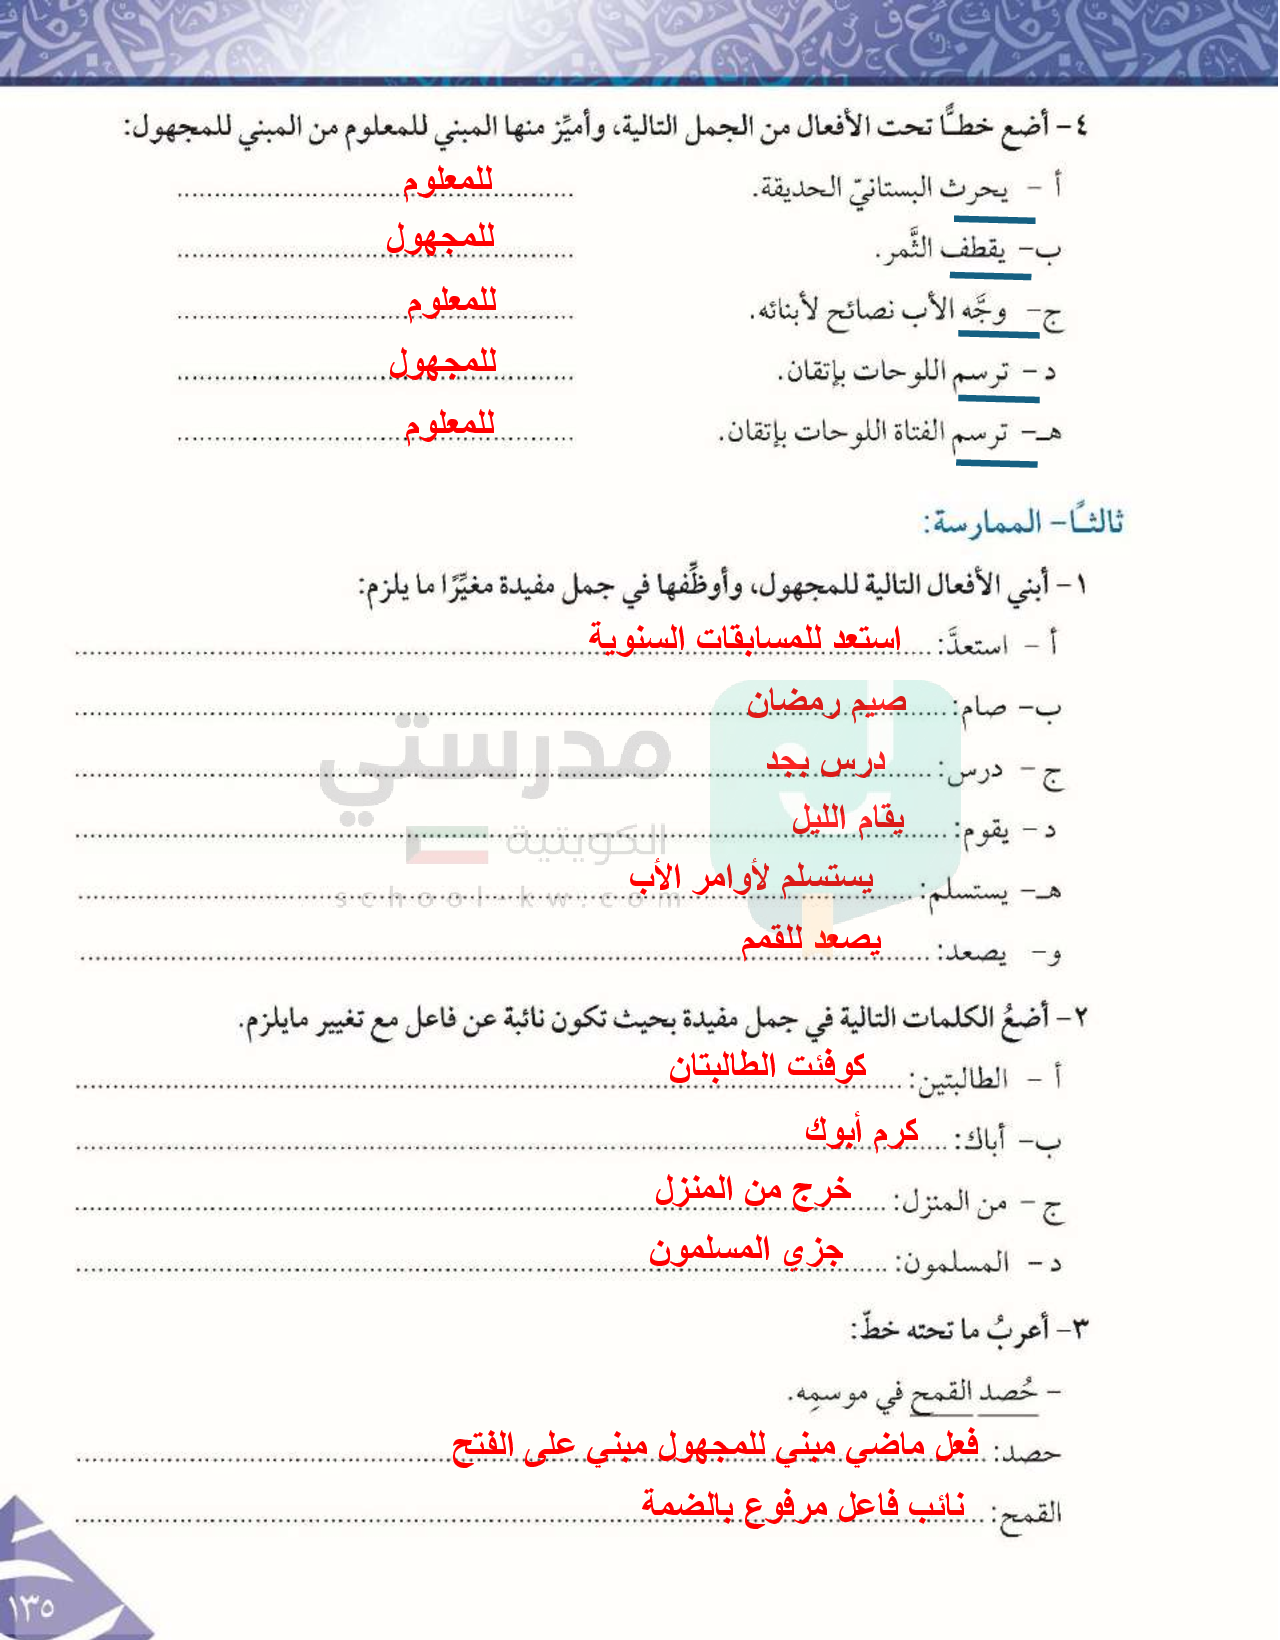 ٤- أضع خطًّا تحت الأفعال من الجمل التالية، وأميِّز منها المبني للمعلوم من المبني للمجهول:
أ - يحرث البستانيّ الحديقة. للمعلوم
ب- يقطف الثَّمر. للمجهول
ج- وجَّه الأب نصائح لأبنائه. للمعلوم
د - ترسم اللوحات بإتقان. للمجهول
هـ- ترسم الفتاة اللوحات بإتقان. للمعلوم
ثالثًا- الممارسة:
١- أبني الأفعال التالية للمجهول، وأوظِّفها في جمل مفيدة مغيِّرًا ما يلزم:
أ - استعدَّ: استعد للمسابقات السنوية
ب- صام: صيم رمضان
ج - درس: درس بجد
د - يقوم: يقام الليل
هـ- يستسلم: يستسلم لأوامر الأب
و- يصعد: يصعد للقمم
مدرستي
الكويتية
school-kw.com
٢- أضعُ الكلمات التالية في جمل مفيدة بحيث تكون نائبة عن فاعل مع تغيير مايلزم.
أ - الطالبتين: كوفئت الطالبتان
ب- أباك: كرم أبوك
ج - من المنزل: خرج من المنزل
د - المسلمون: جزي المسلمون
٣- أعربُ ما تحته خطّ:
- حُصد القمح في موسمِه.
حصد: فعل ماضي مبني للمجهول مبني على الفتح
القمح: نائب فاعل مرفوع بالضمة
١٣٥